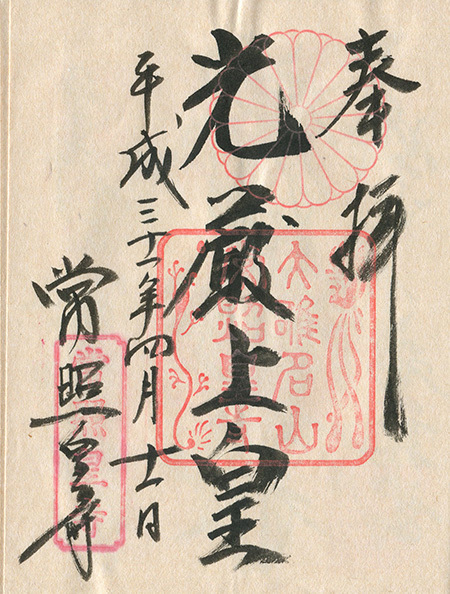 奉拝
光厳上皇
平成三十一年四月十一日
常照皇寺
大雄名山
常照皇寺
常照皇寺